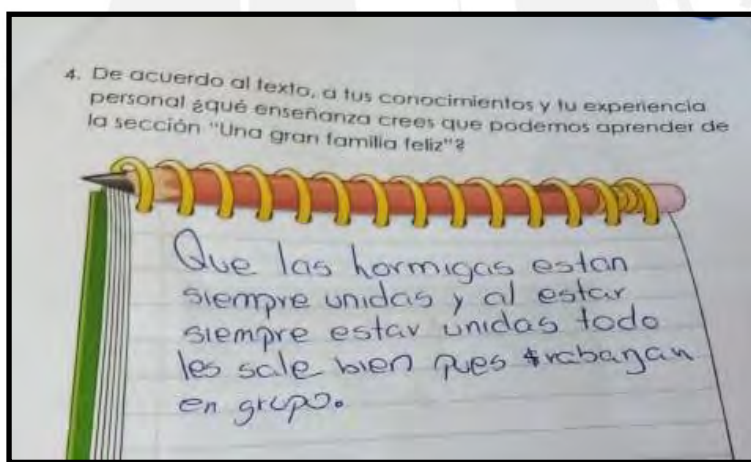 4. De acuerdo al texto, a tus conocimientos y tu experiencia
personal ¿qué enseñanza crees que podemos aprender de
la sección "Una gran familia feliz"?
Que las hormigas estan
siempre unidas y al estar
siempre estar unidas todo
les sale bien pues trabagan
en grupo.